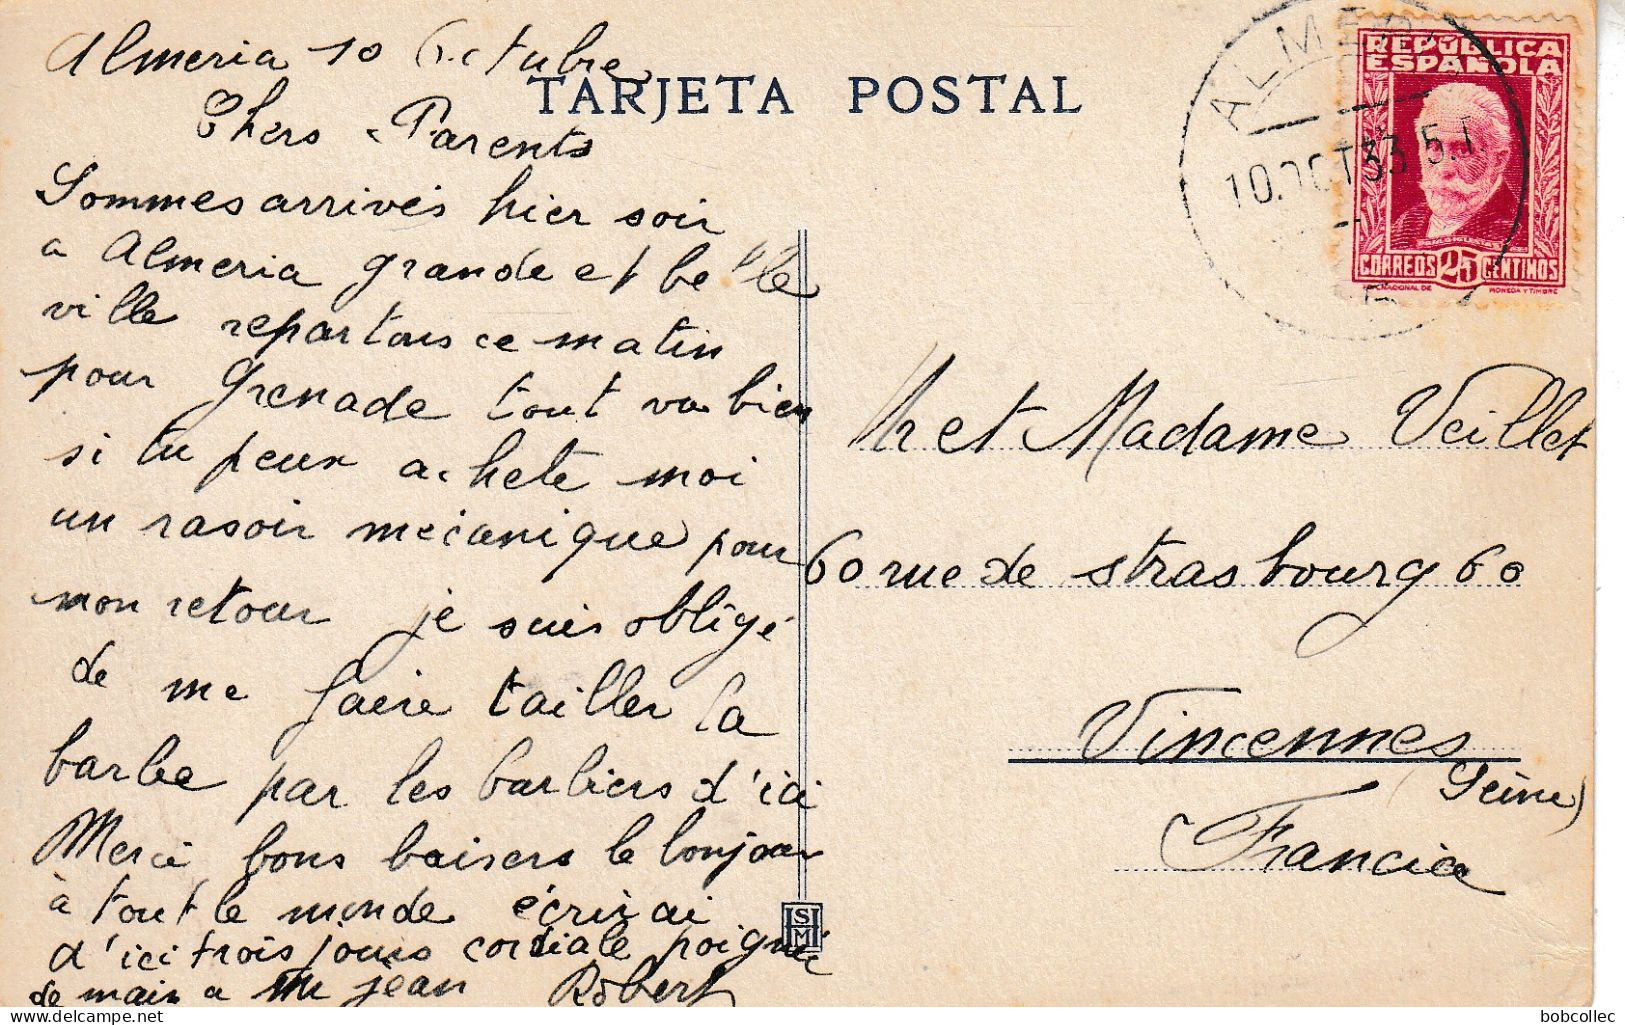 Almeria 10 Octubre
TARJETA POSTAL
Chers Parents
Sommes arrivés hier soir
a Almeria grande et belle
ville repartons ce matin
pour Grenade tout va bien
si tu peux achete moi
un rasoir mécanique pour
mon retour je suis obligé
de me faire tailler la
barbe par les barbiers d'ici
Merci bons baisers le bonjour
à tout le monde écrirai
d'ici trois jours cordiale poignée
de main a Jean Robert
ALMER
10.OCT33 5.T
REPÚBLICA
ESPAÑOLA
CORREOS 25 CENTIMOS
MONEDA Y TIMBRE
Mr et Madame Veillet
60 rue de strasbourg 60
Vincennes
(Seine)
Francia
HSM
delcampe.net
bobcollec